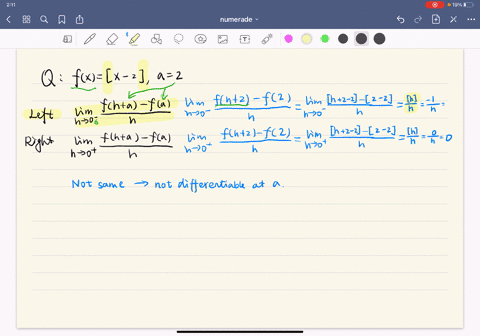 2:11
numerade
18%
Q: f(x)=[x-2], a=2
Left lim h→0⁻ f(h+a)-f(a) / h lim h→0⁻ f(h+2)-f(2) / h = lim h→0⁻ [h+2-2]-[2-2] / h = [h] / h = -1 / h =
Right lim h→0⁺ f(h+a)-f(a) / h lim h→0⁺ f(h+2)-f(2) / h = lim h→0⁺ [h+2-2]-[2-2] / h = [h] / h = 0 / h = 0
Not same → not differentiable at a.